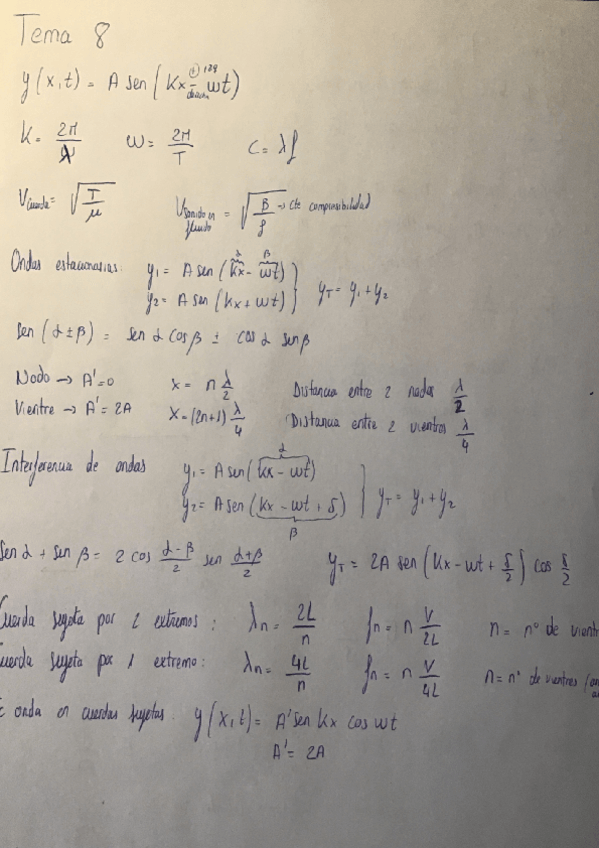 Tema 8
y(x,t) = A sen (Kx ± wt)
K = 2π/λ   w = 2π/T   c = λf
Vcuerda = √(T/μ)   Vsonido en fluido = √(B/ρ) → cte compresibilidad
Ondas estacionarias: y₁ = A sen (kx - wt)
y₂ = A sen (kx + wt)   yT = y₁ + y₂
sen (α ± β) = sen α cos β ± cos α sen β
Nodo → A' = 0   x = n λ/2   Distancia entre 2 nodos λ/2
Vientre → A' = 2A   x = (2n+1) λ/4   Distancia entre 2 vientres λ/4
Interferencia de ondas   y₁ = A sen (kx - wt)
y₂ = A sen (kx - wt + δ)   yT = y₁ + y₂
sen α + sen β = 2 cos (α-β)/2 sen (α+β)/2   yT = 2A sen (kx - wt + δ/2) cos δ/2
Cuerda sujeta por 2 extremos: λn = 2L/n   fn = n V/2L   n = nº de vientr
Cuerda sujeta por 1 extremo: λn = 4L/n   fn = n V/4L   n = nº de vientres
onda en cuerdas sujetas: y(x,t) = A' sen Kx cos wt
A' = 2A